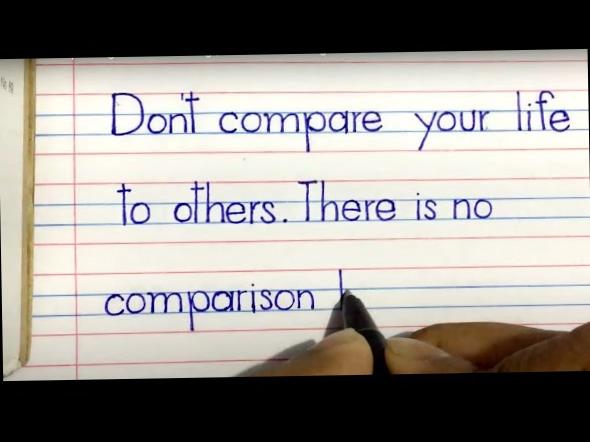 Don't compare your life
to others. There is no
comparison